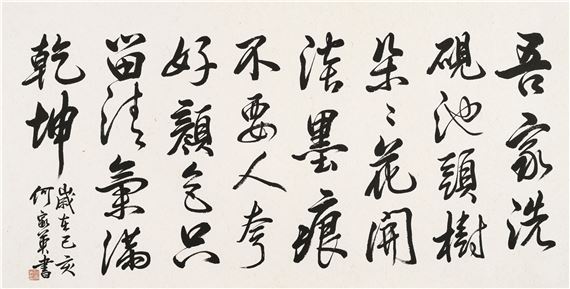 吾家洗
硯池頭樹
朵〻花開
淡墨痕
不要人夸
好顏色只
留清氣滿
乾坤
歲在己亥
何家英書